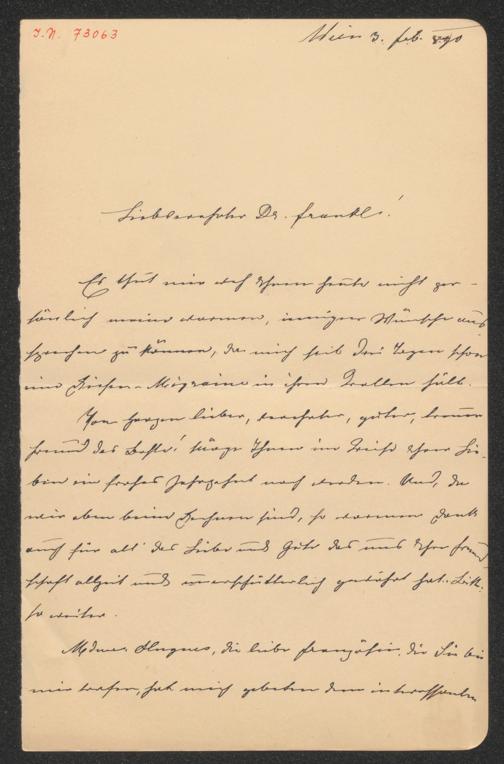 J.N. 73063
Wien 3. feb. 890
Liebverehrter Dr. Frankl!
Es thut mir weh Ihnen heute nicht per-
sönlich meine warmen, innigen Wünsche aus
sprechen zu können, da mich seit drei Tagen schon
eine Riesen-Migraine in ihren Krallen hält.
Von Herzen lieber, verehrter, guter, treuer
Freund das Beste! möge Ihnen im Kreise Ihrer Lie-
ben ein frohes Jahrzehnt noch werden. Und, da
wir eben beim Rechnen sind, so warmen Dank
auch für all' das Liebe und Gute das uns Ihre Freund
schaft allzeit und unerschütterlich gewährt hat. Bitte:
so weiter.
Mdme Hugues, die liebe Französin, die Sie bei
mir trafen, hat mich gebeten dem interessanten